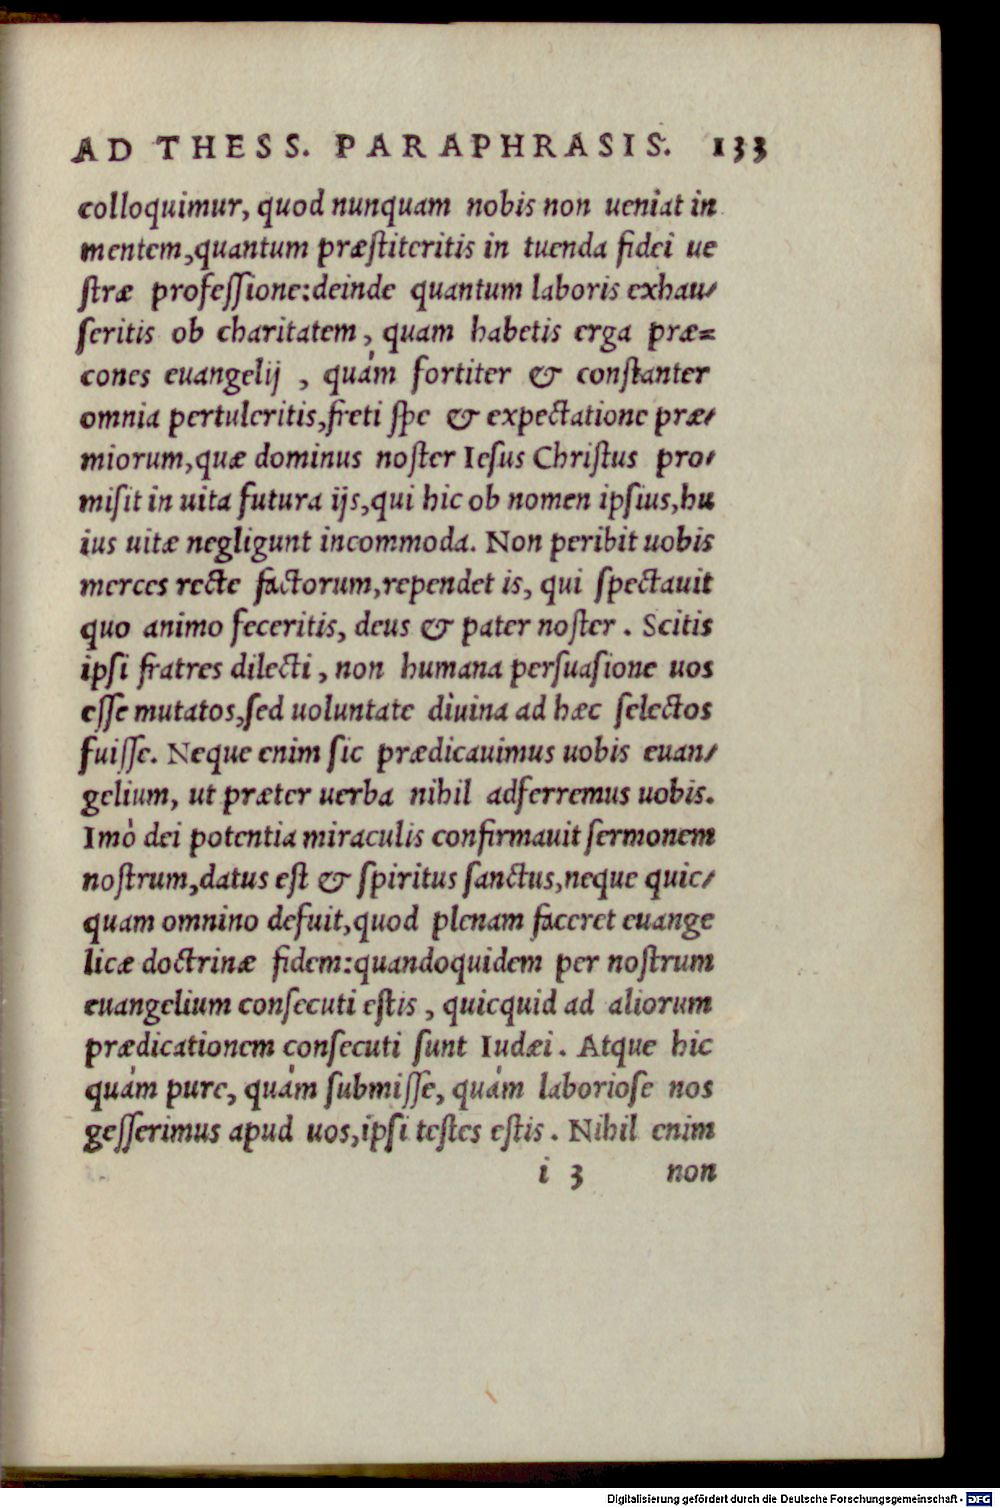 AD THESS. PARAPHRASIS. 133
colloquimur, quod nunquam nobis non ueniat in
mentem, quantum præſtiteritis in tuenda fidei ue
ſtræ profeſſione: deinde quantum laboris exhau-
ſeritis ob charitatem, quam habetis erga præ=
cones euangelij, quàm fortiter & conſtanter
omnia pertuleritis, freti ſpe & expectatione præ-
miorum, quæ dominus noſter Ieſus Chriſtus pro-
miſit in uita futura ijs, qui hic ob nomen ipſius, hu
ius uitæ negligunt incommoda. Non peribit uobis
merces recte factorum, rependet is, qui ſpectauit
quo animo feceritis, deus & pater noſter. Scitis
ipſi fratres dilecti, non humana perſuaſione uos
eſſe mutatos, ſed uoluntate diuina ad hæc ſelectos
fuiſſe. Neque enim ſic prædicauimus uobis euan-
gelium, ut præter uerba nihil adferremus uobis.
Imò dei potentia miraculis confirmauit ſermonem
noſtrum, datus eſt & ſpiritus ſanctus, neque quic-
quam omnino defuit, quod plenam faceret euange
licæ doctrinæ fidem: quandoquidem per noſtrum
euangelium conſecuti eſtis, quicquid ad aliorum
prædicationem conſecuti ſunt Iudæi. Atque hic
quàm pure, quàm ſubmiſſe, quàm laborioſe nos
geſſerimus apud uos, ipſi teſtes eſtis. Nihil enim
i 3 non
Digitalisierung gefördert durch die Deutsche Forschungsgemeinschaft - DFG